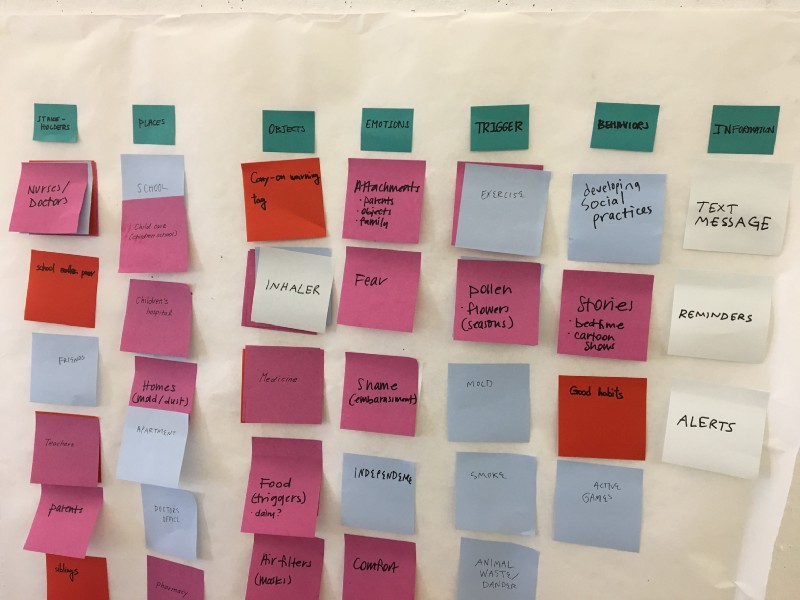 STAKE-
HOLDERS
Nurses/
Doctors
FRIENDS
Teachers
parents
siblings
PLACES
SCHOOL
Child care
Children's
hospital
Homes
(mold/dust)
APARTMENT
DOCTORS
OFFICE
Pharmacy
OBJECTS
Carry-on warning
tag
INHALER
Medicine
Food
(triggers)
· dairy?
Air-filters
(masks)
EMOTIONS
Attachments
· parents
· objects
· family
Fear
Shame
(embarassment)
INDEPENDENE
Comfort
TRIGGER
EXERCISE
pollen
· flowers
(seasons)
MOLD
SMOKE
ANIMAL
WASTE/
DANDER
BEHAVIORS
developing
social
practices
Stories
· bedtime
· cartoon
shows
Good habits
ACTIVE
GAMES
INFORMATION
TEXT
MESSAGE
REMINDERS
ALERTS